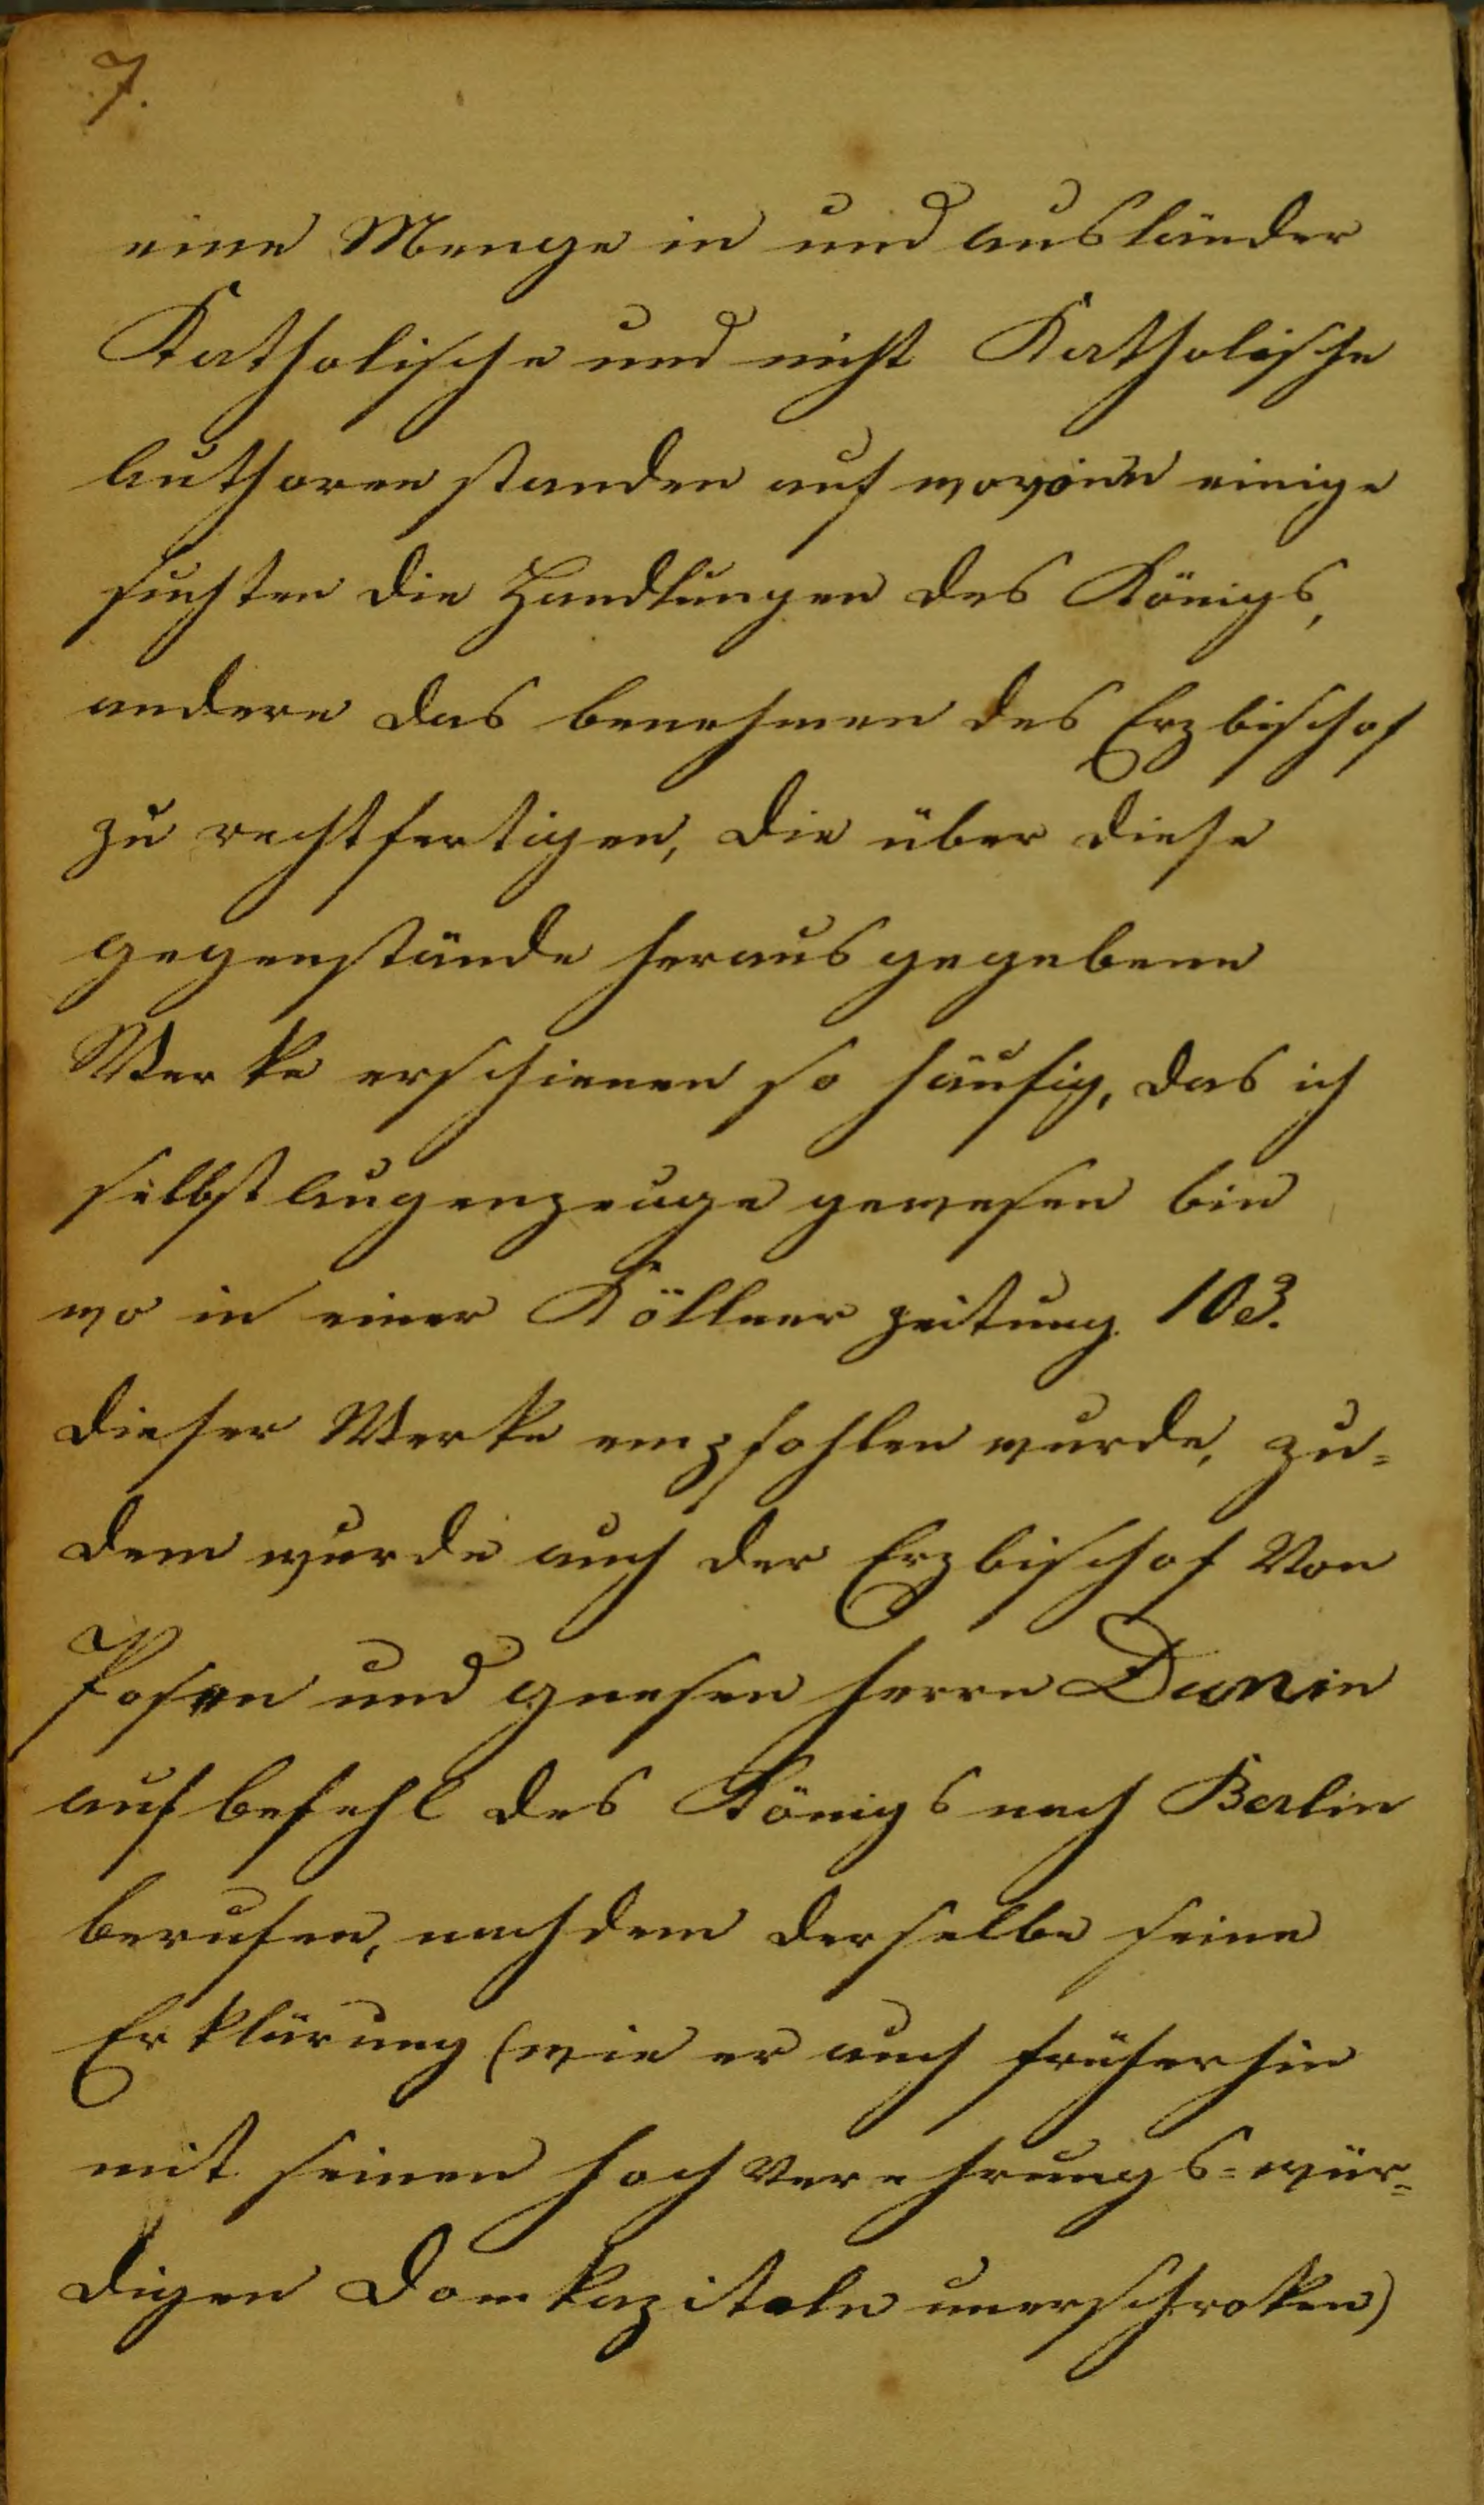 7.
eine Menge in und ausländer
Katholische und nicht Katholische
Authoren standen auf wovonn einige
suchten die Handlungen des Königs,
andere das benehmen des Erzbischof
zu rechtfertigen, die über diese
gegenstände herausgegebene
Werke erschienen so häufig, das ich
selbst Augenzeuge gewesen bin
wo in einer Köllner zeitung 103.
dieser Werke empfohlen wurde, zu=
dem wurde auch der Erzbischof Von
Posen und gnesen herrn Dunin
auf befehl des Königs nach Berlin
berufen, nachdem derselbe seine
Erklärung (wie er auch früherhin
mit seinen hochverehrungs=wür=
digen Domkapiteln unerschroken)